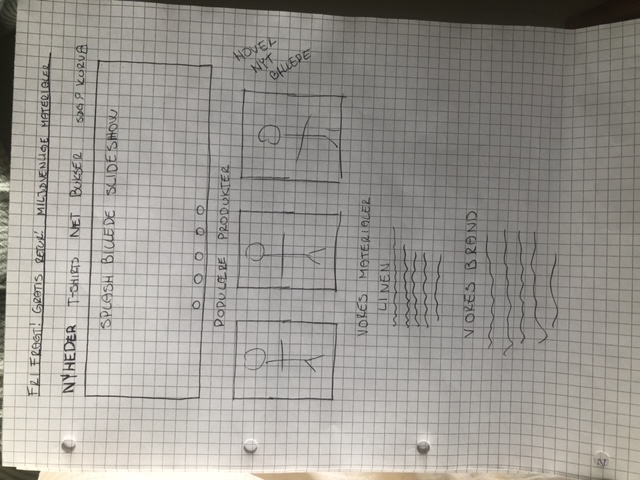 FRI FRAGT! GRATIS RETUR! MILJØVENLIGE MATERIALER
NYHEDER T-SHIRTS NET BUKSER SØG KURV
SPLASH BILLEDE SLIDESHOW
POPULÆRE PRODUKTER
HOVER
NYT
BILLEDE
VORES MATERIALER
LINEN
VORES BRAND
2